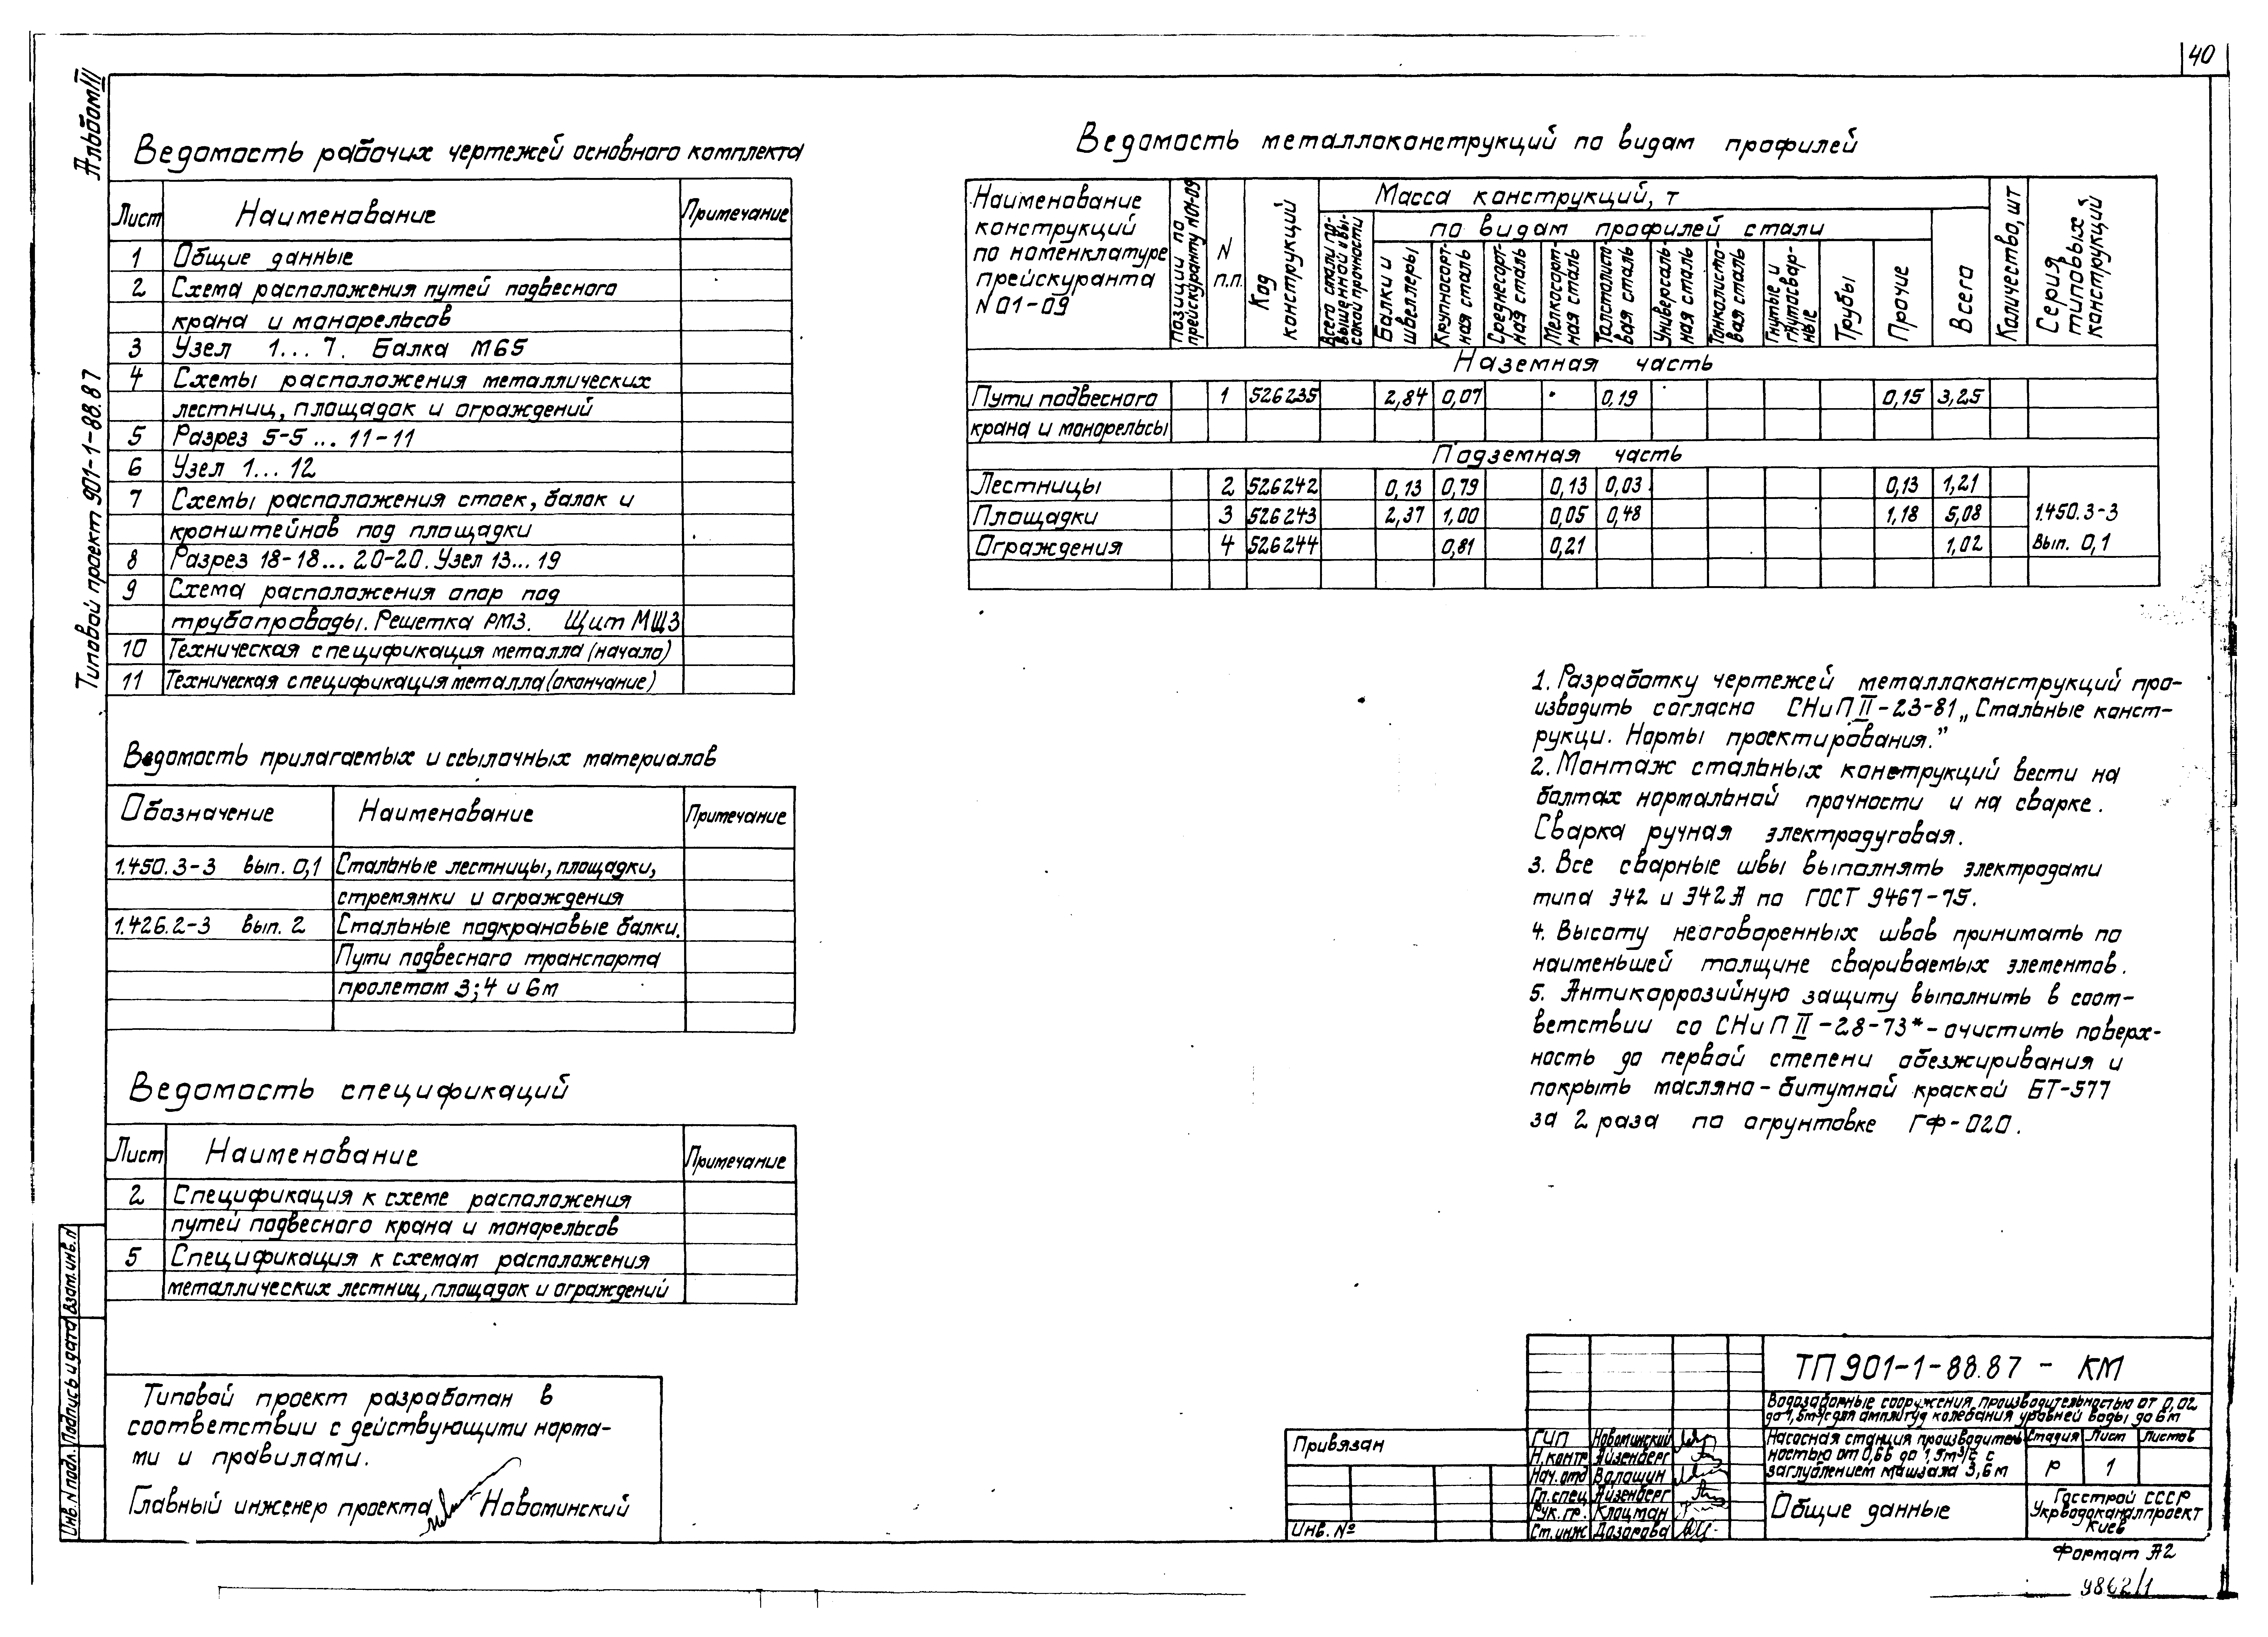 40
Альбом III
Типовой проект 901-1-88.87
Ведомость рабочих чертежей основного комплекта
Лист Наименование Примечание
1 Общие данные
2 Схема расположения путей подвесного
крана и монорельсов
3 Узел 1...7. Балка МБ5
4 Схемы расположения металлических
лестниц, площадок и ограждений
5 Разрез 5-5 ... 11-11
6 Узел 1... 12
7 Схемы расположения стоек, балок и
кронштейнов под площадки
8 Разрез 18-18... 20-20. Узел 13... 19
9 Схема расположения опор под
трубопроводы. Решетка РМ3. Щит МЩ3
10 Техническая спецификация металла (начало)
11 Техническая спецификация металла (окончание)
Ведомость прилагаемых и ссылочных материалов
Обозначение Наименование Примечание
1.450.3-3 вып. 0,1 Стальные лестницы, площадки,
стремянки и ограждения
1.426.2-3 вып. 2 Стальные подкрановые балки.
Пути подвесного транспорта
пролетом 3; 4 и 6м
Ведомость спецификаций
Лист Наименование Примечание
2 Спецификация к схеме расположения
путей подвесного крана и монорельсов
5 Спецификация к схемам расположения
металлических лестниц, площадок и ограждений
Типовой проект разработан в
соответствии с действующими норма-
ми и правилами.
Главный инженер проекта Новоминский
Инв. N подл. Подпись и дата Взам. инв. N
Ведомость металлоконструкций по видам профилей
Наименование
конструкций
по номенклатуре
прейскуранта
N 01-09
Позиции по
прейскуранту N01-09
N
п.п.
Код
конструкций
Масса конструкций, т
Всего стали по-
вышенной и вы-
сокой прочности
по видам профилей стали
Балки и
швеллеры
Крупносорт-
ная сталь
Среднесорт-
ная сталь
Мелкосорт-
ная сталь
Толстолисто-
вая сталь
Универсаль-
ная сталь
Тонколисто-
вая сталь
Гнутые и
гнутосвар-
ные
Трубы
Прочие
Всего
Количество, шт
Серия
типовых
конструкций
Наземная часть
Пути подвесного 1 526235 2,84 0,07 0,19 0,15 3,25
крана и монорельсы
Подземная часть
Лестницы 2 526242 0,13 0,79 0,13 0,03 0,13 1,21
Площадки 3 526243 2,37 1,00 0,05 0,48 1,18 5,08 1.450.3-3
Ограждения 4 526244 0,81 0,21 1,02 Вып. 0,1
1. Разработку чертежей металлоконструкций про-
изводить согласно СНиП II-23-81 „Стальные конст-
рукци. Нормы проектирования."
2. Монтаж стальных конструкций вести на
болтах нормальной прочности и на сварке.
Сварка ручная электродуговая.
3. Все сварные швы выполнять электродами
типа Э42 и Э42А по ГОСТ 9467-75.
4. Высоту неоговоренных швов принимать по
наименьшей толщине свариваемых элементов.
5. Антикоррозийную защиту выполнить в соот-
ветствии со СНиП II-28-73* - очистить поверх-
ность до первой степени обезжиривания и
покрыть масляно-битумной краской БТ-577
за 2 раза по огрунтовке ГФ-020.
Привязан
Инв. №
ГИП Новоминский
Н.контр Айзенберг
Нач. отд Волошин
Гл. спец Айзенберг
Рук. гр. Клоцман
Ст. инж Дозорова
ТП 901-1-88.87 - КМ
Водозаборные сооружения производительностью от 0,02
до 1,5м³/с для амплитуд колебания уровней воды до 6м
Насосная станция производитель-
ностью от 0,66 до 1,5м³/с с
заглублением машзала 3,6м
Стадия Лист Листов
Р 1
Общие данные
Госстрой СССР
Укрводоканалпроект
Киев
Формат А2
9862/1